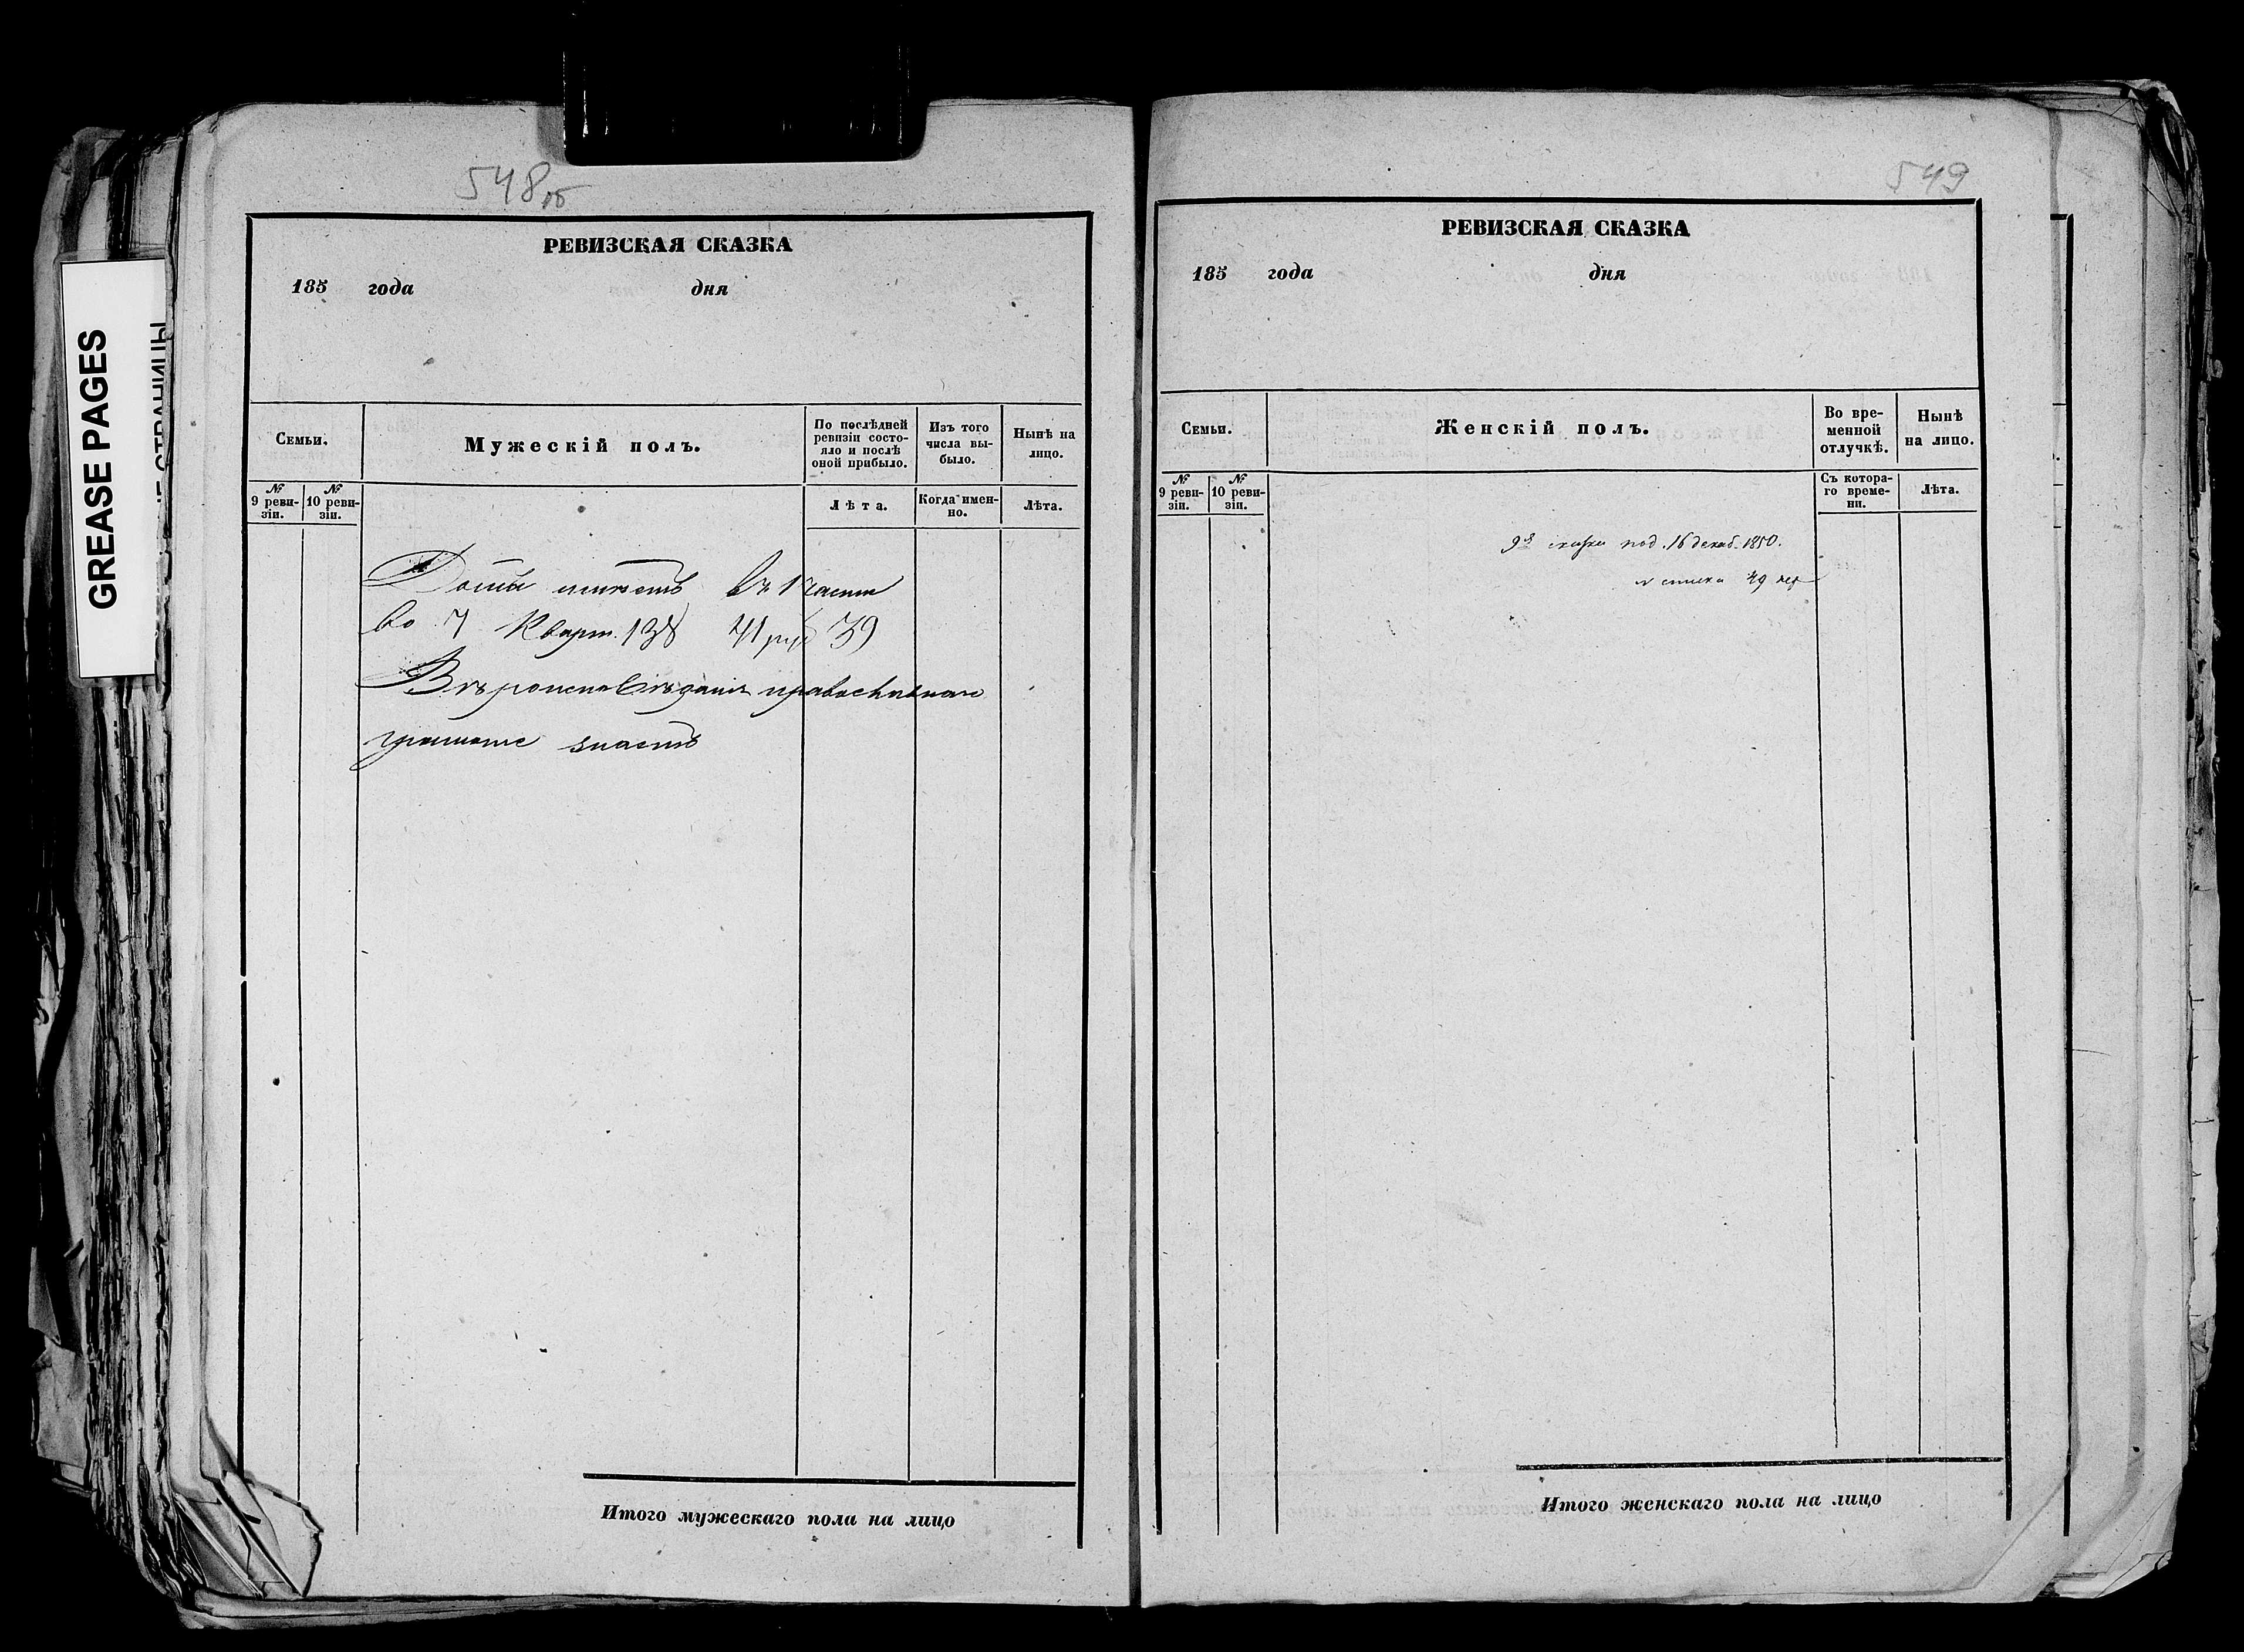 GREASE PAGES
548 об
РЕВИЗСКАЯ СКАЗКА
185 года дня
Семьи.
Мужескій полъ.
По послѣдней ревизіи состояло и послѣ оной прибыло.
Изъ того числа выбыло.
Нынѣ на лицо.
№ 9 ревизіи.
№ 10 ревизіи.
Лѣта.
Когда именно.
Лѣта.
Домъ имѣетъ въ 1 части
во 7 Кварт. 138 41 руб 39
Вѣроисповѣданія православнаго
грамоте знаетъ
Итого мужескаго пола на лицо
549
РЕВИЗСКАЯ СКАЗКА
185 года дня
Семьи.
Женскій полъ.
Во временной отлучкѣ.
Нынѣ на лицо.
№ 9 ревизіи.
№ 10 ревизіи.
Съ котораго времени.
Лѣта.
9я сказка под. 16 декаб. 1850.
49
Итого женскаго пола на лицо